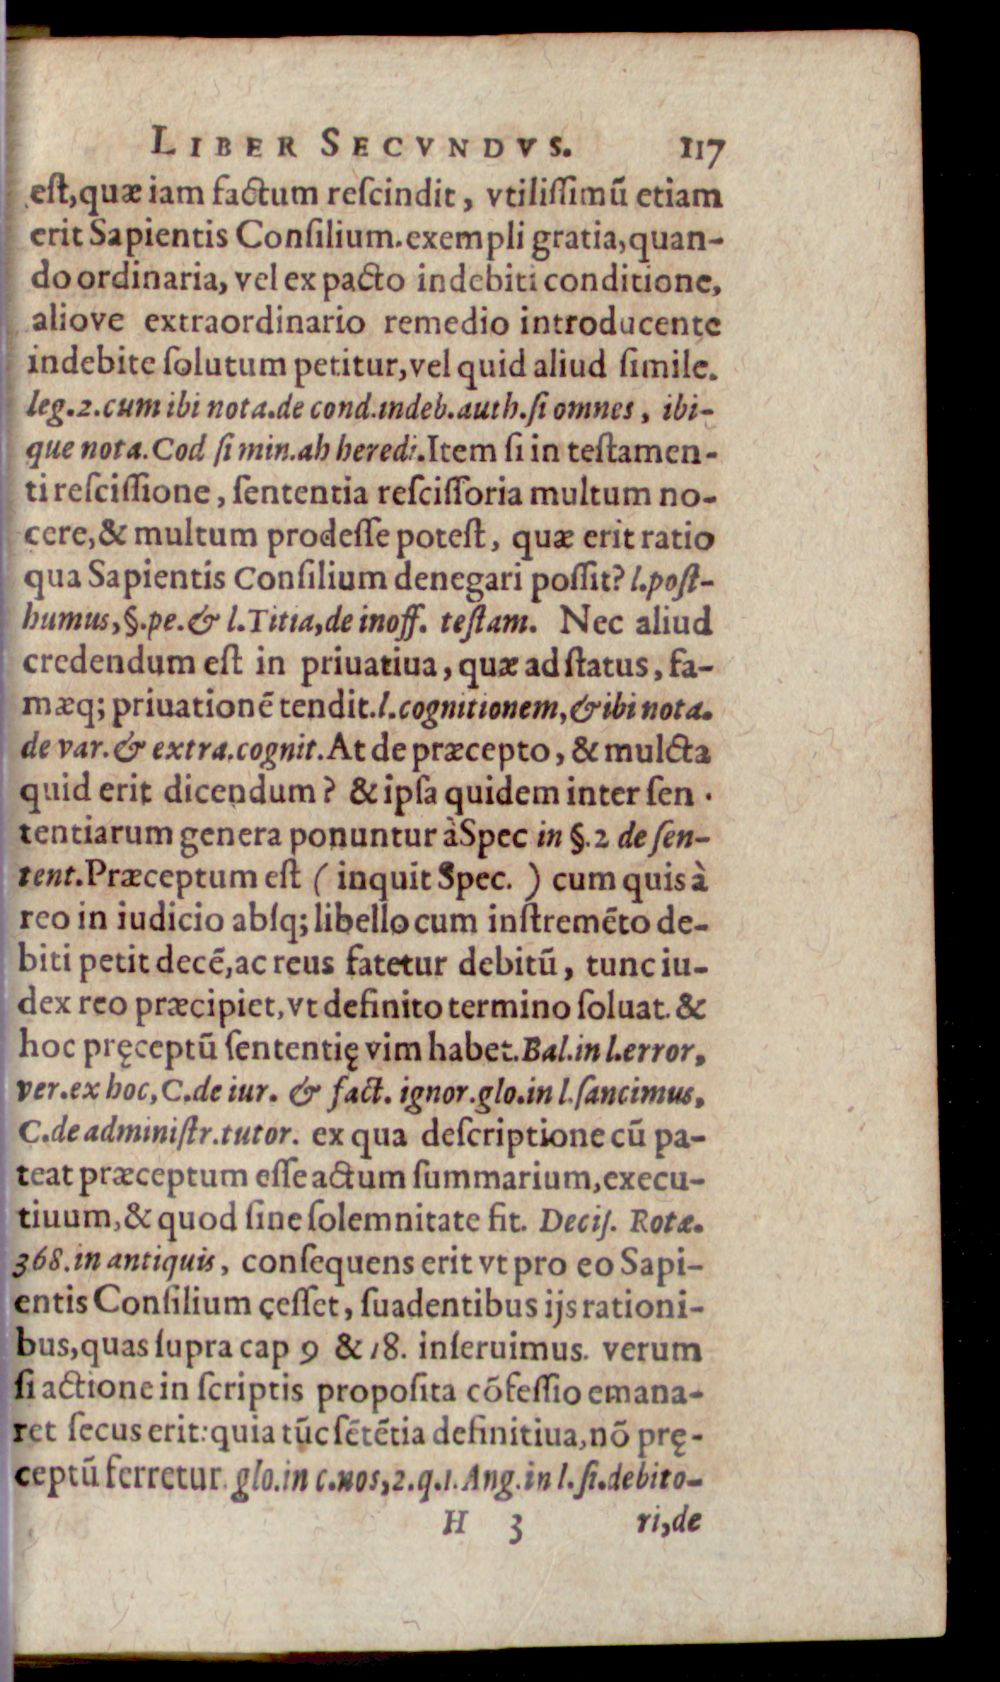 LIBER SECVNDVS. 117
est,quæ iam factum rescindit, vtilissimū etiam
erit Sapientis Consilium.exempli gratia,quan-
do ordinaria, vel ex pacto indebiti conditione,
aliove extraordinario remedio introducente
indebite solutum petitur,vel quid aliud simile.
leg.2.cum ibi nota.de cond.indeb.auth.si omnes, ibi-
que nota.Cod si min.ab heredi.Item si in testamen-
ti rescissione, sententia rescissoria multum no-
cere,& multum prodesse potest, quæ erit ratio
qua Sapientis Consilium denegari possit? l.post-
humus,§.pe.& l.Titia,de inoff. testam. Nec aliud
credendum est in priuatiua, quæ ad status, fa-
mæq; priuationē tendit.l.cognitionem,& ibi nota.
de var.& extra.cognit.At de præcepto, & mulcta
quid erit dicendum? & ipsa quidem inter sen-
tentiarum genera ponuntur àSpec in §.2 de sen-
tent.Præceptum est (inquit Spec.) cum quis à
reo in iudicio absq; libello cum instremēto de-
biti petit decē,ac reus fatetur debitū, tunc iu-
dex reo præcipiet,vt definito termino soluat.&
hoc pręceptū sententię vim habet.Bal.in l.error,
ver.ex hoc,C.de iur. & fact. ignor.glo.in l.sancimus,
C.de administr.tutor. ex qua descriptione cū pa-
teat præceptum esse actum summarium,execu-
tiuum,& quod sine solemnitate fit. Decis. Rotæ.
368.in antiquis, consequens erit vt pro eo Sapi-
entis Consilium cesset, suadentibus ijs rationi-
bus,quas supra cap 9 & 18. inseruimus. verum
si actione in scriptis proposita cōfessio emana-
ret secus erit:quia tūc sētētia definitiua,nō prę-
ceptū ferretur.glo.in c.nos,2.q.1.Ang.in l.si.debito-
H 3 ri,de